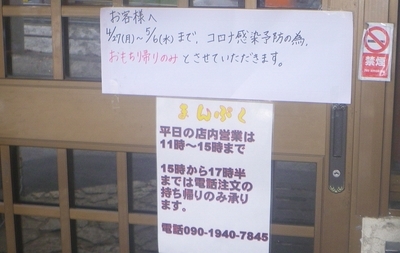 お客様へ
4/27(月)〜5/6(水)まで、コロナ感染予防の為、
おもち帰りのみとさせていただきます。
禁煙
まんぷく
平日の店内営業は
11時〜15時まで
15時から17時半
までは電話注文の
持ち帰りのみ承り
ます。
電話090-1940-7845